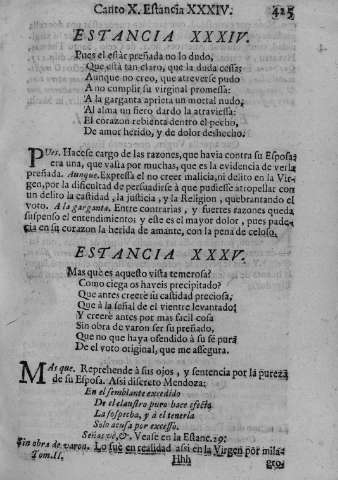 Canto X. Estancia XXXIV. 425
ESTANCIA XXXIV.
Pues el estàr preñada no lo dudo,
Que està tan claro, que la duda cessa;
Aunque no creo, que atreverse pudo
A no cumplir su virginal promessa:
A la garganta aprieta un mortal nudo,
Al alma un fiero dardo la atraviessa:
El corazon rebienta dentro el pecho,
De amor herido, y de dolor deshecho.
PUes. Hacese cargo de las razones, que havia contra su Esposa,
era una, que valia por muchas, que es la evidencia de verla
preñada. Aunque. Expressa el no creer malicia, ni delito en la Vir-
gen, por la dificultad de persuadirse à que pudiesse atropellar con
un delito la castidad, la justicia, y la Religion, quebrantando el
voto. A la garganta. Entre contrarias, y fuertes razones queda
suspenso el entendimiento; y este es el mayor dolor, pues pade-
cia en su corazon la herida de amante, con la pena de celoso.
ESTANCIA XXXV.
Mas què es aquesto vista temerosa?
Como ciega os haveis precipitado?
Que antes creerè su castidad preciosa,
Que à la señal de el vientre levantado:
Y creerè antes por mas facil cosa
Sin obra de varon ser su preñado,
Que no que haya ofendido à su fé pura
De el voto original, que me assegura.
MAs que. Reprehende à sus ojos, y sentencia por la pureza
de su Esposa. Assi discreto Mendoza:
En el semblante excedido
De el claustro puro hace efecto
La sospecha, y à el tenerla
Solo acusa por excesso.
Señas vè, &. Vease en la Estanc. 29.
Sin obra de varon. Lo fuè en realidad assi en la Virgen por mila-
Tom. II. Hhh gro,